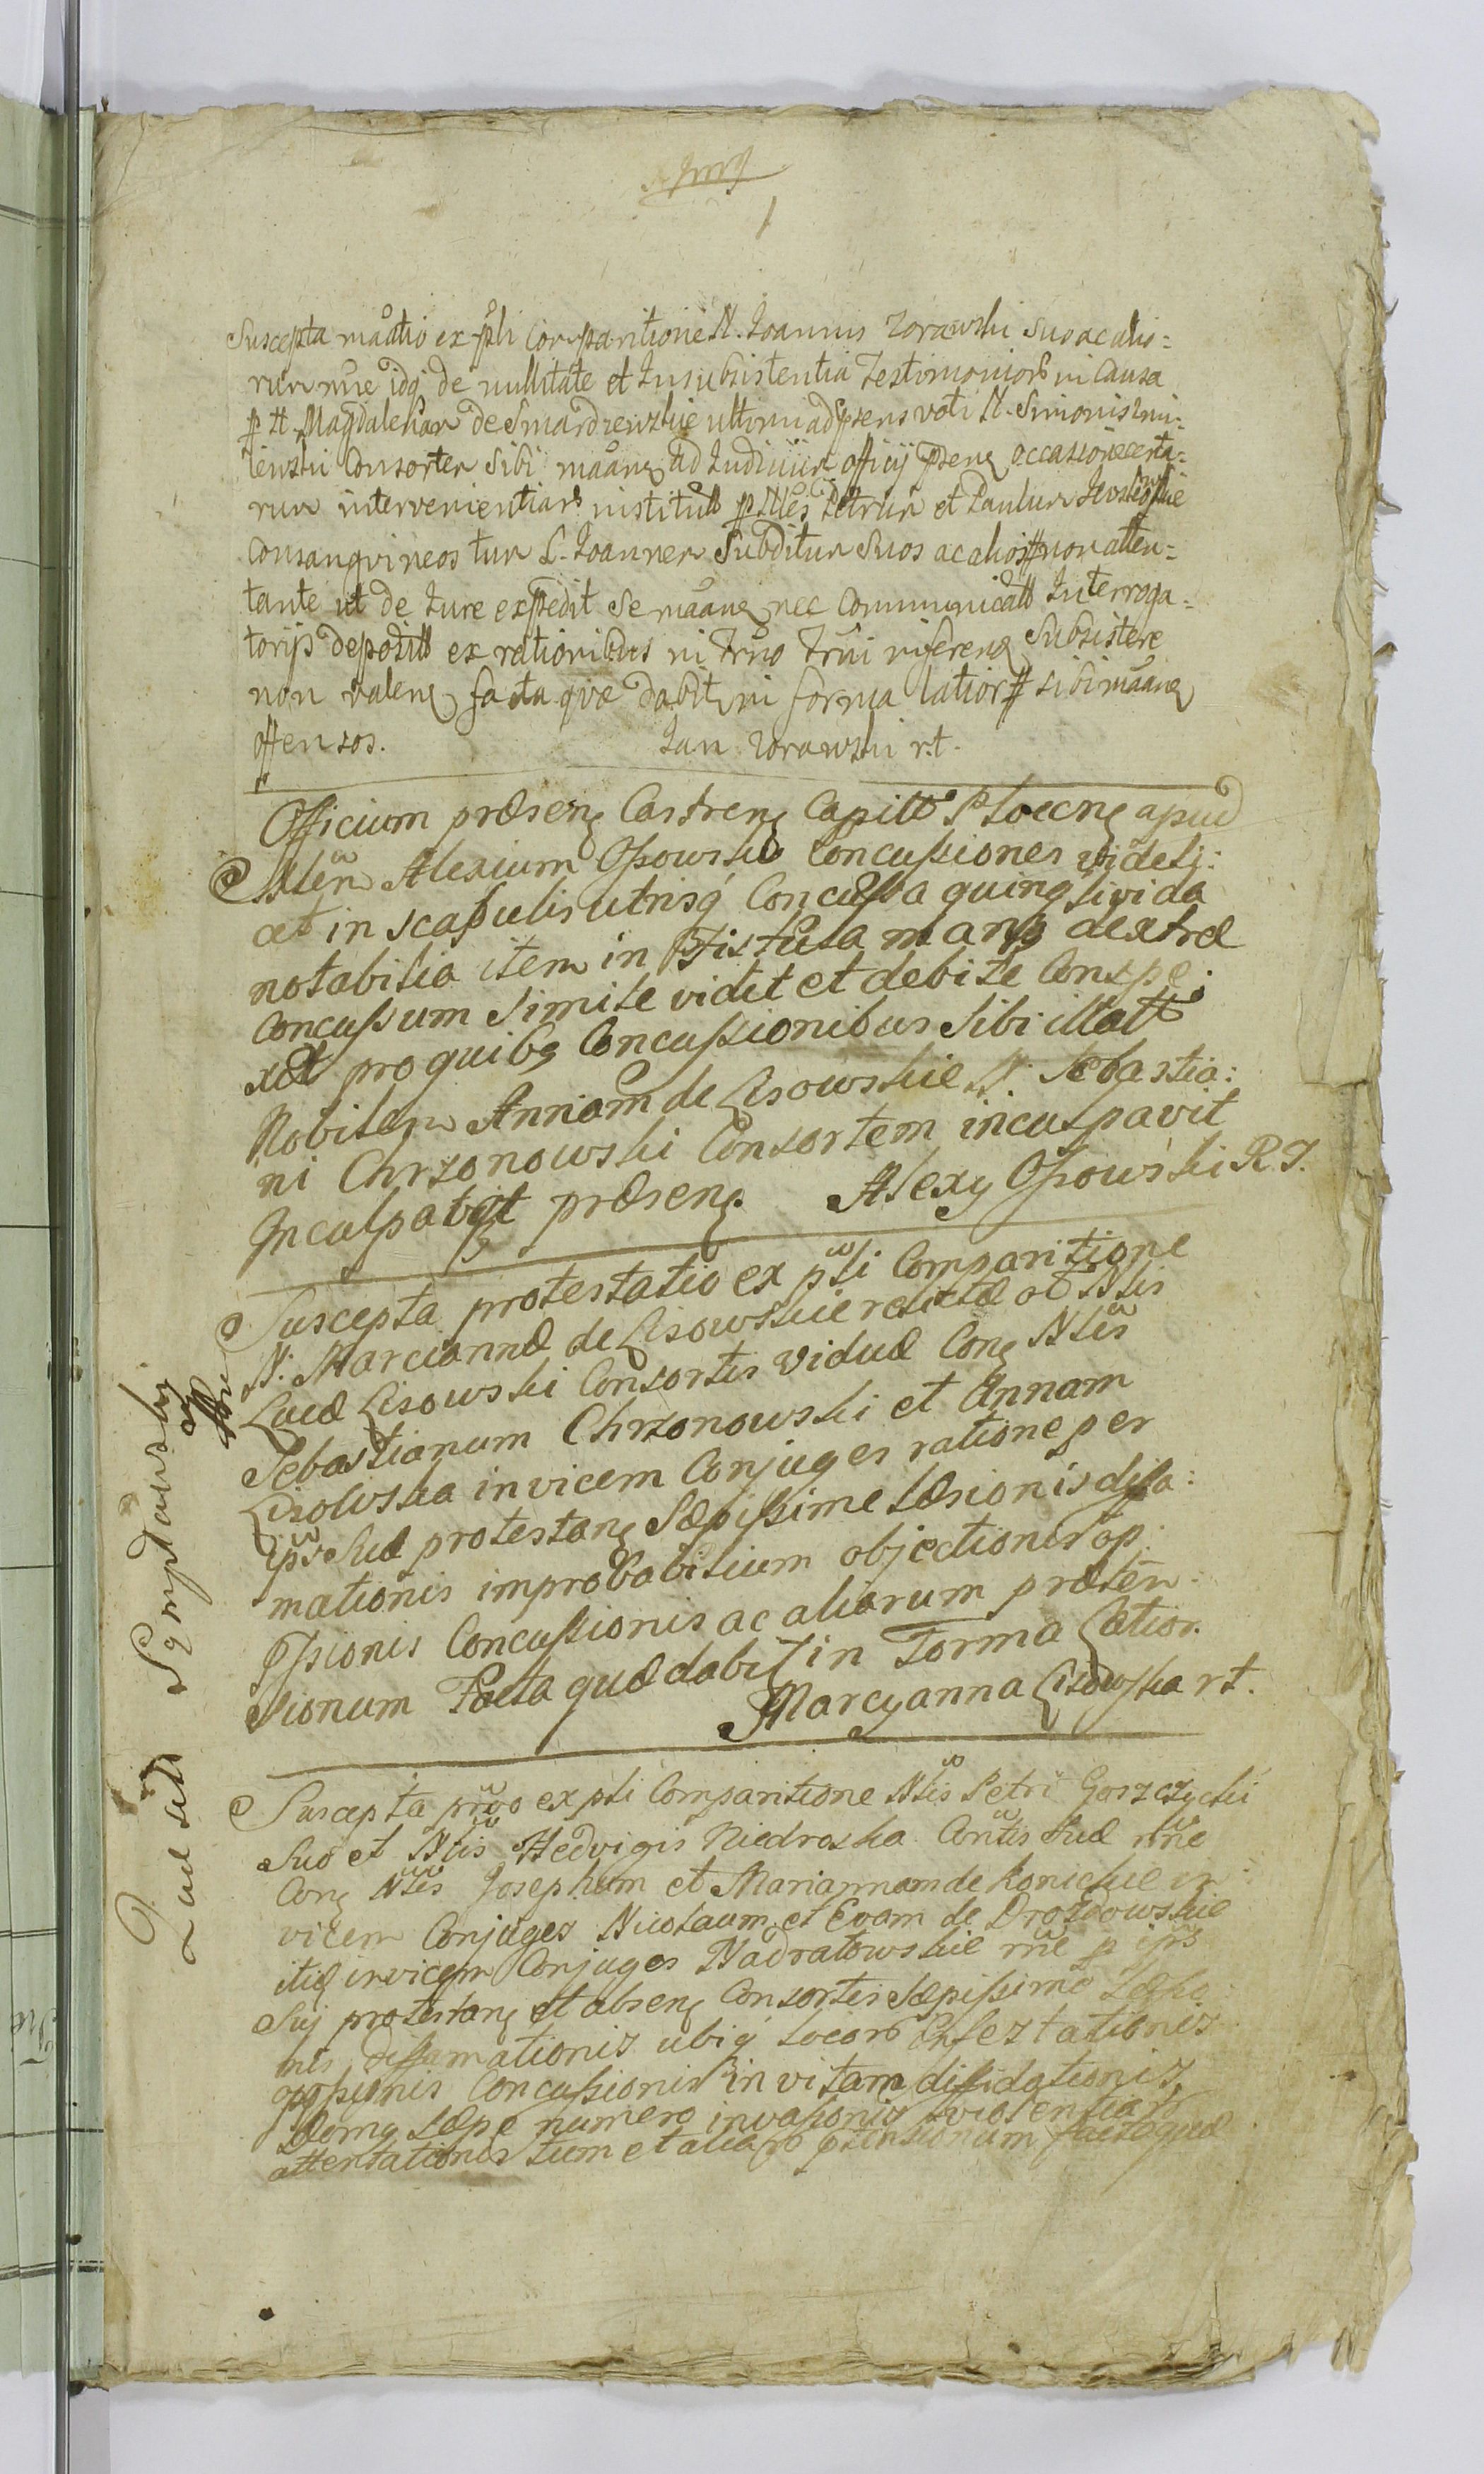 1
Suscepta maatio ex pli Comparitione N. Joannis Zorawski suo ac alio=
rum nne idq de nullitate et Insubsistentia Testimonior in Causa
p N. Magdalenam de Smardzewskie ultimi ad psens voti N. Simonis
Consortem sibi maane ad Judicium officij psens occasione certa=
rum intervenientiar institut p Nles Petrum et Paulum
Consangvineos tum L. Joannem Subditum Suos ac alios non atten=
tante ut de Jure expedit se maane nec Communicatt Interroga=
torijs deposit ex rationibus in Trno Trni inferens Subsistere
non valens facta qvæ dabit in forma latiori sibi maane
offensos. Jan Zorawski r.t.
Officium præsens Castrens Capitt Plocens apud
Nlem Alexium Ossowski Concussiones videli:
cet in scapulis utrisq Concussa quinq livida
notabilia item in Fistula manus dextræ
Concussum simile vidit et debite Conspe:
xit pro quibs Concussionibus sibi illatt
Nobilem Annam de Lisowskie N: Sebastia:
ni Chrzonowski Consortem inculpavit
Inculpat præsens. Alexy Ossowski R.T.
Suscepta protestatio ex pli Comparitione
N: Marciannæ de Lisowskie relictæ ol Nlis
Lucæ Lisowski Consortis viduæ Con Nles
Sebastianum Chrzonowski et Annam
Lisowska invicem Conjuges ratione per
ips suæ protestans Sæpissime læsionis diffa:
mationis improbabilium objectionis op:
pssionis Concussionis ac aliorum præten:
sionum Facta quæ dabit in Forma Latior.
Marcyanna Lisowska rt.
Suscepta prvo ex pli Comparitione Nlis Petri Gorzczycki
Suo et Nlis Hedvigis Niedroska Contis suæ nne
Con Nles Josephum et Mariannam de Konickie in
vicem Conjuges Nicolaum et Evam de Drozdowskie
itid invicem Conjuges Nadratowskie rne p ips
Sui protestans et absens Consortis Sæpissime Læsio
nis, diffamationis ubiq locor Infestationis
oppssionis Concussionis in vitam diffidationis,
Doms sæpe numero invasionis violentiar
attentationis tum et aliar ptensionum facta quæ